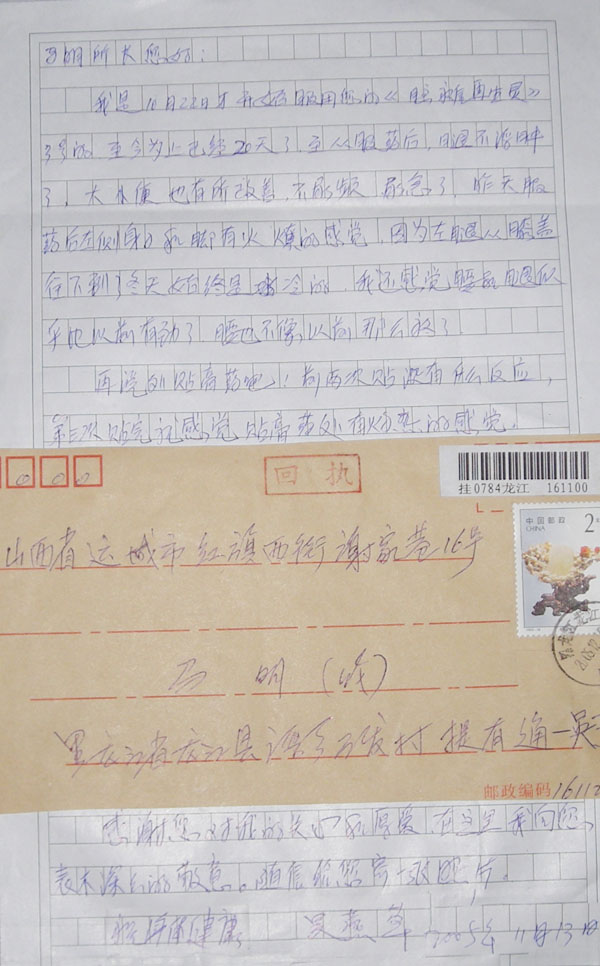 明所长您好：
我是10月22日才开始服用您的《髓康再生灵》
3号的 至今为止已经20天了，至从服药后，腿不浮肿
了，大小便也有所改善，不尿频 尿急了，昨天服
药后左侧身和脚有火燎的感觉，因为左腿从膝盖
往下到了冬天始终是冰冷的，我还感觉腰和腿似
乎比以前有劲了，腰也不像以前那么疼了，
再说外贴膏药吧！前两次贴没有什么反应，
第三次贴完就感觉贴膏药处有灼热的感觉。
回执
挂0784龙江 161100
中国邮政
CHINA
2
山西省运城市红旗西街谢家巷16号
明（收）
黑龙江省龙江县 发村
邮政编码
感谢您对我的关心和厚爱，在这里我向您
表示深深的敬意。随信给您寄一张照片。
祝身体健康 2005年11月13日